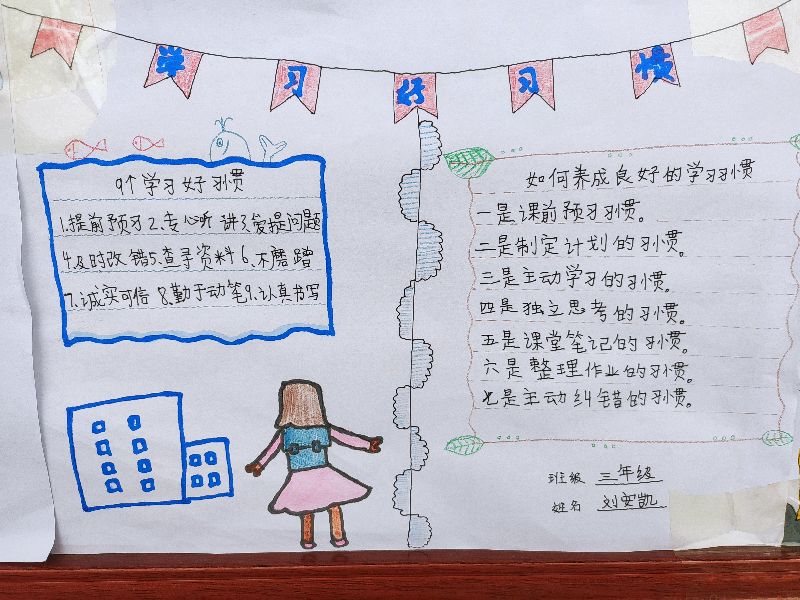 学习好习惯
9个学习好习惯
1.提前预习2.专心听 讲3.爱提问题
4.及时改错5.查寻资料6.不磨蹭
7.诚实可信 8.勤于动笔9.认真书写
如何养成良好的学习习惯
一是课前预习习惯。
二是制定计划的习惯。
三是主动学习的习惯。
四是独立思考的习惯。
五是课堂笔记的习惯。
六是整理作业的习惯。
七是主动纠错的习惯。
班级 三年级
姓名 刘安凯